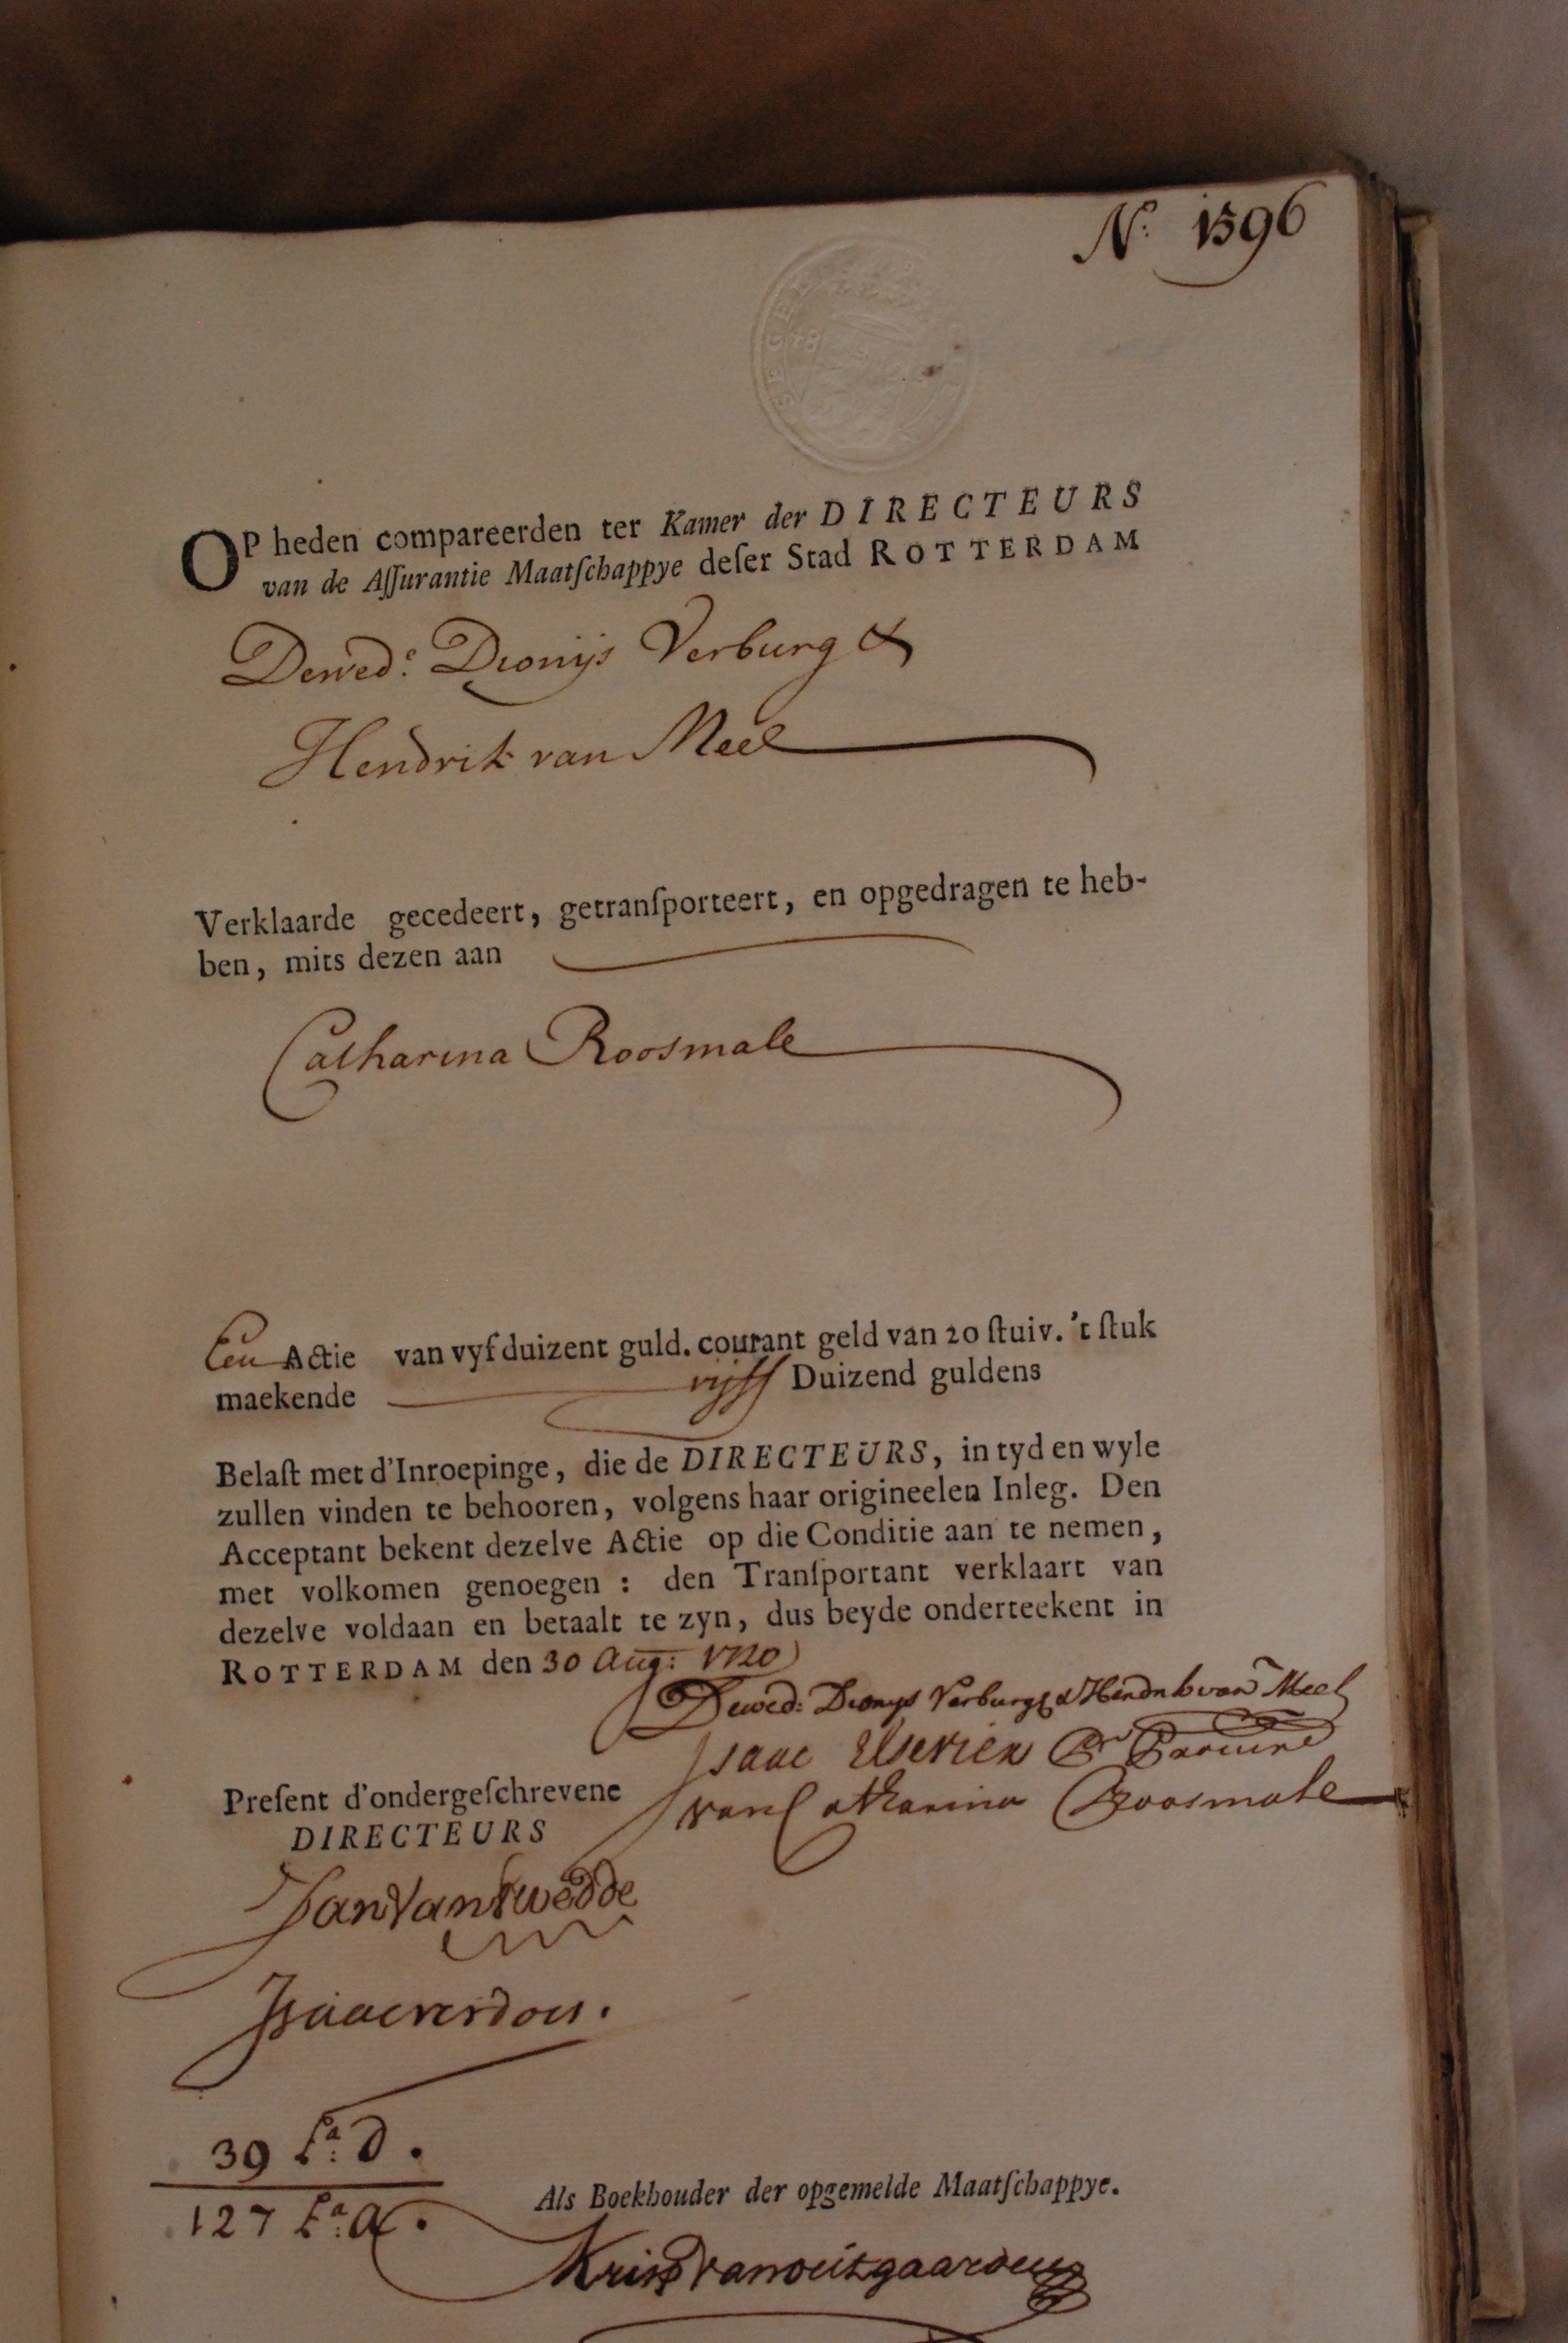 No: 1596
OP heden compareerden ter Kamer der DIRECTEURS
van de Aſſurantie Maatſchappye deſer Stad ROTTERDAM
Dewed:e Dionijs Verburg &
Hendrik van Meel
Verklaarde gecedeert, getranſporteert, en opgedragen te heb-
ben, mits dezen aan
Catharina Roosmale
Een Actie van vyf duizent guld. courant geld van 20 ſtuiv. 't ſtuk
maekende vijff Duizend guldens
Belaſt met d'Inroepinge, die de DIRECTEURS, in tyd en wyle
zullen vinden te behooren, volgens haar origineelen Inleg. Den
Acceptant bekent dezelve Actie op die Conditie aan te nemen,
met volkomen genoegen : den Tranſportant verklaart van
dezelve voldaan en betaalt te zyn, dus beyde onderteekent in
ROTTERDAM den 30 Aug: 1720
Dewed: Dionys Verburg & Hendrik van Meel
Isaac Elsevier
van Catharina Roosmale
Preſent d'ondergeſchrevene
DIRECTEURS
Jan Van Twedde
39 La: D.
127 La: A.
Als Boekhouder der opgemelde Maatſchappye.